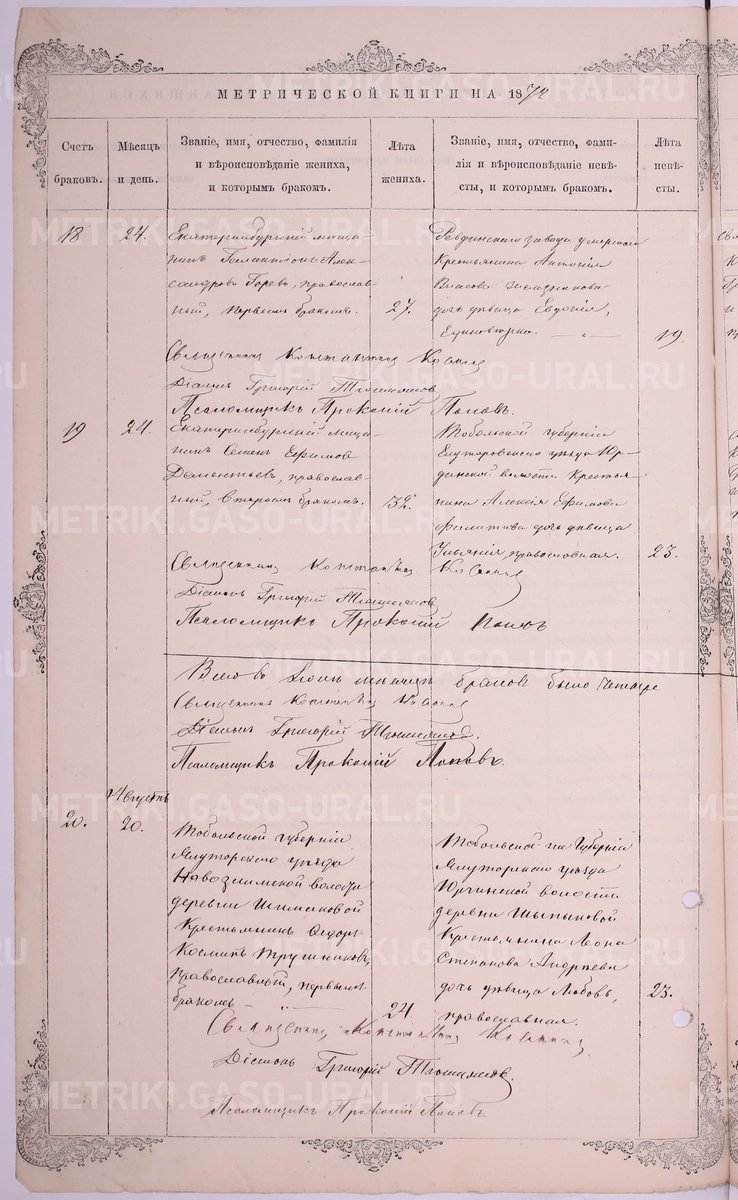 МЕТРИЧЕСКОЙ КНИГИ НА 1872
Счетъ браковъ.
Мѣсяцъ и день.
Званіе, имя, отчество, фамилія
и вѣроисповѣданіе жениха,
и которымъ бракомъ.
Лѣта жениха.
Званіе, имя, отчество, фами-
лія и вѣроисповѣданіе невѣ-
сты, и которымъ бракомъ.
Лѣта невѣ-
сты.
18
24.
Екатеринбургскій мѣща-
нинъ Галактіонъ Алек-
сандровъ Горевъ, православ-
ный, первымъ бракомъ.
27.
завода умершаго
Крестьянина
Власова
дочь дѣвица Евдокія,
Единовѣрка.
19.
Священникъ Константинъ
Діаконъ Григорій
Псаломщикъ Прокопій Поповъ.
19
24.
Екатеринбургскій мѣща-
нинъ Семенъ Ефимовъ
Дементьевъ, православ-
ный, вторымъ бракомъ.
32.
Тобольской губерніи
Ялуторовскаго уѣзда Юр-
гинской волости Крестья-
нина Алексія Ефимова
дочь дѣвица
Ульянія, православная.
23.
Священникъ Константинъ
Діаконъ Григорій
Псаломщикъ Прокопій Поповъ
Всего въ Іюлѣ мѣсяцѣ браковъ было четыре
Священникъ Константинъ
Діаконъ Григорій
Псаломщикъ Прокопій Поповъ.
Августъ
20.
20.
Тобольской губерніи
Ялуторскаго уѣзда
волости
деревни
Крестьянинъ Ѳедоръ
Косминъ Трушниковъ,
православный, первымъ
бракомъ
24
Тобольской же Губерніи
Ялуторскаго уѣзда
Юргинской волости
деревни Шыпыковой
Крестьянина Леона
Степанова Андреева
дочь дѣвица Любовь,
православная.
23.
Священникъ Константинъ
Діаконъ Григорій
Псаломщикъ Прокопій Поповъ.
METRIKI.GASO-URAL.RU